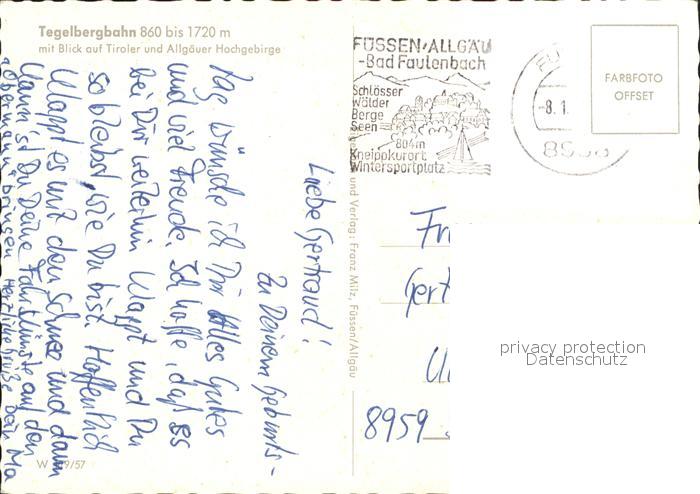 Tegelbergbahn 860 bis 1720 m
mit Blick auf Tiroler und Allgäuer Hochgebirge
Liebe Gertraud!
Zu Deinem Geburts-
tag wünsche ich Dir Alles Gutes
und viel Freude. Ich hoffe, daß es
bei Dir weiterhin klappt und Du
so bleibst wie Du bist. Hoffentlich
klappt es mit dem Schnee und dann
kannst Du Deine Fahrkünste auf den
bringen Herzliche Grüße Dein
W 9/57
und Verlag: Franz Milz, Füssen/Allgäu
FÜSSEN/ALLGÄU
-Bad Faulenbach
Schlösser
Wälder
Berge
Seen
804m
Kneippkurort
Wintersportplatz
FÜ
-8.1.
FARBFOTO
OFFSET
Fr
Gert
8959
privacy protection
Datenschutz